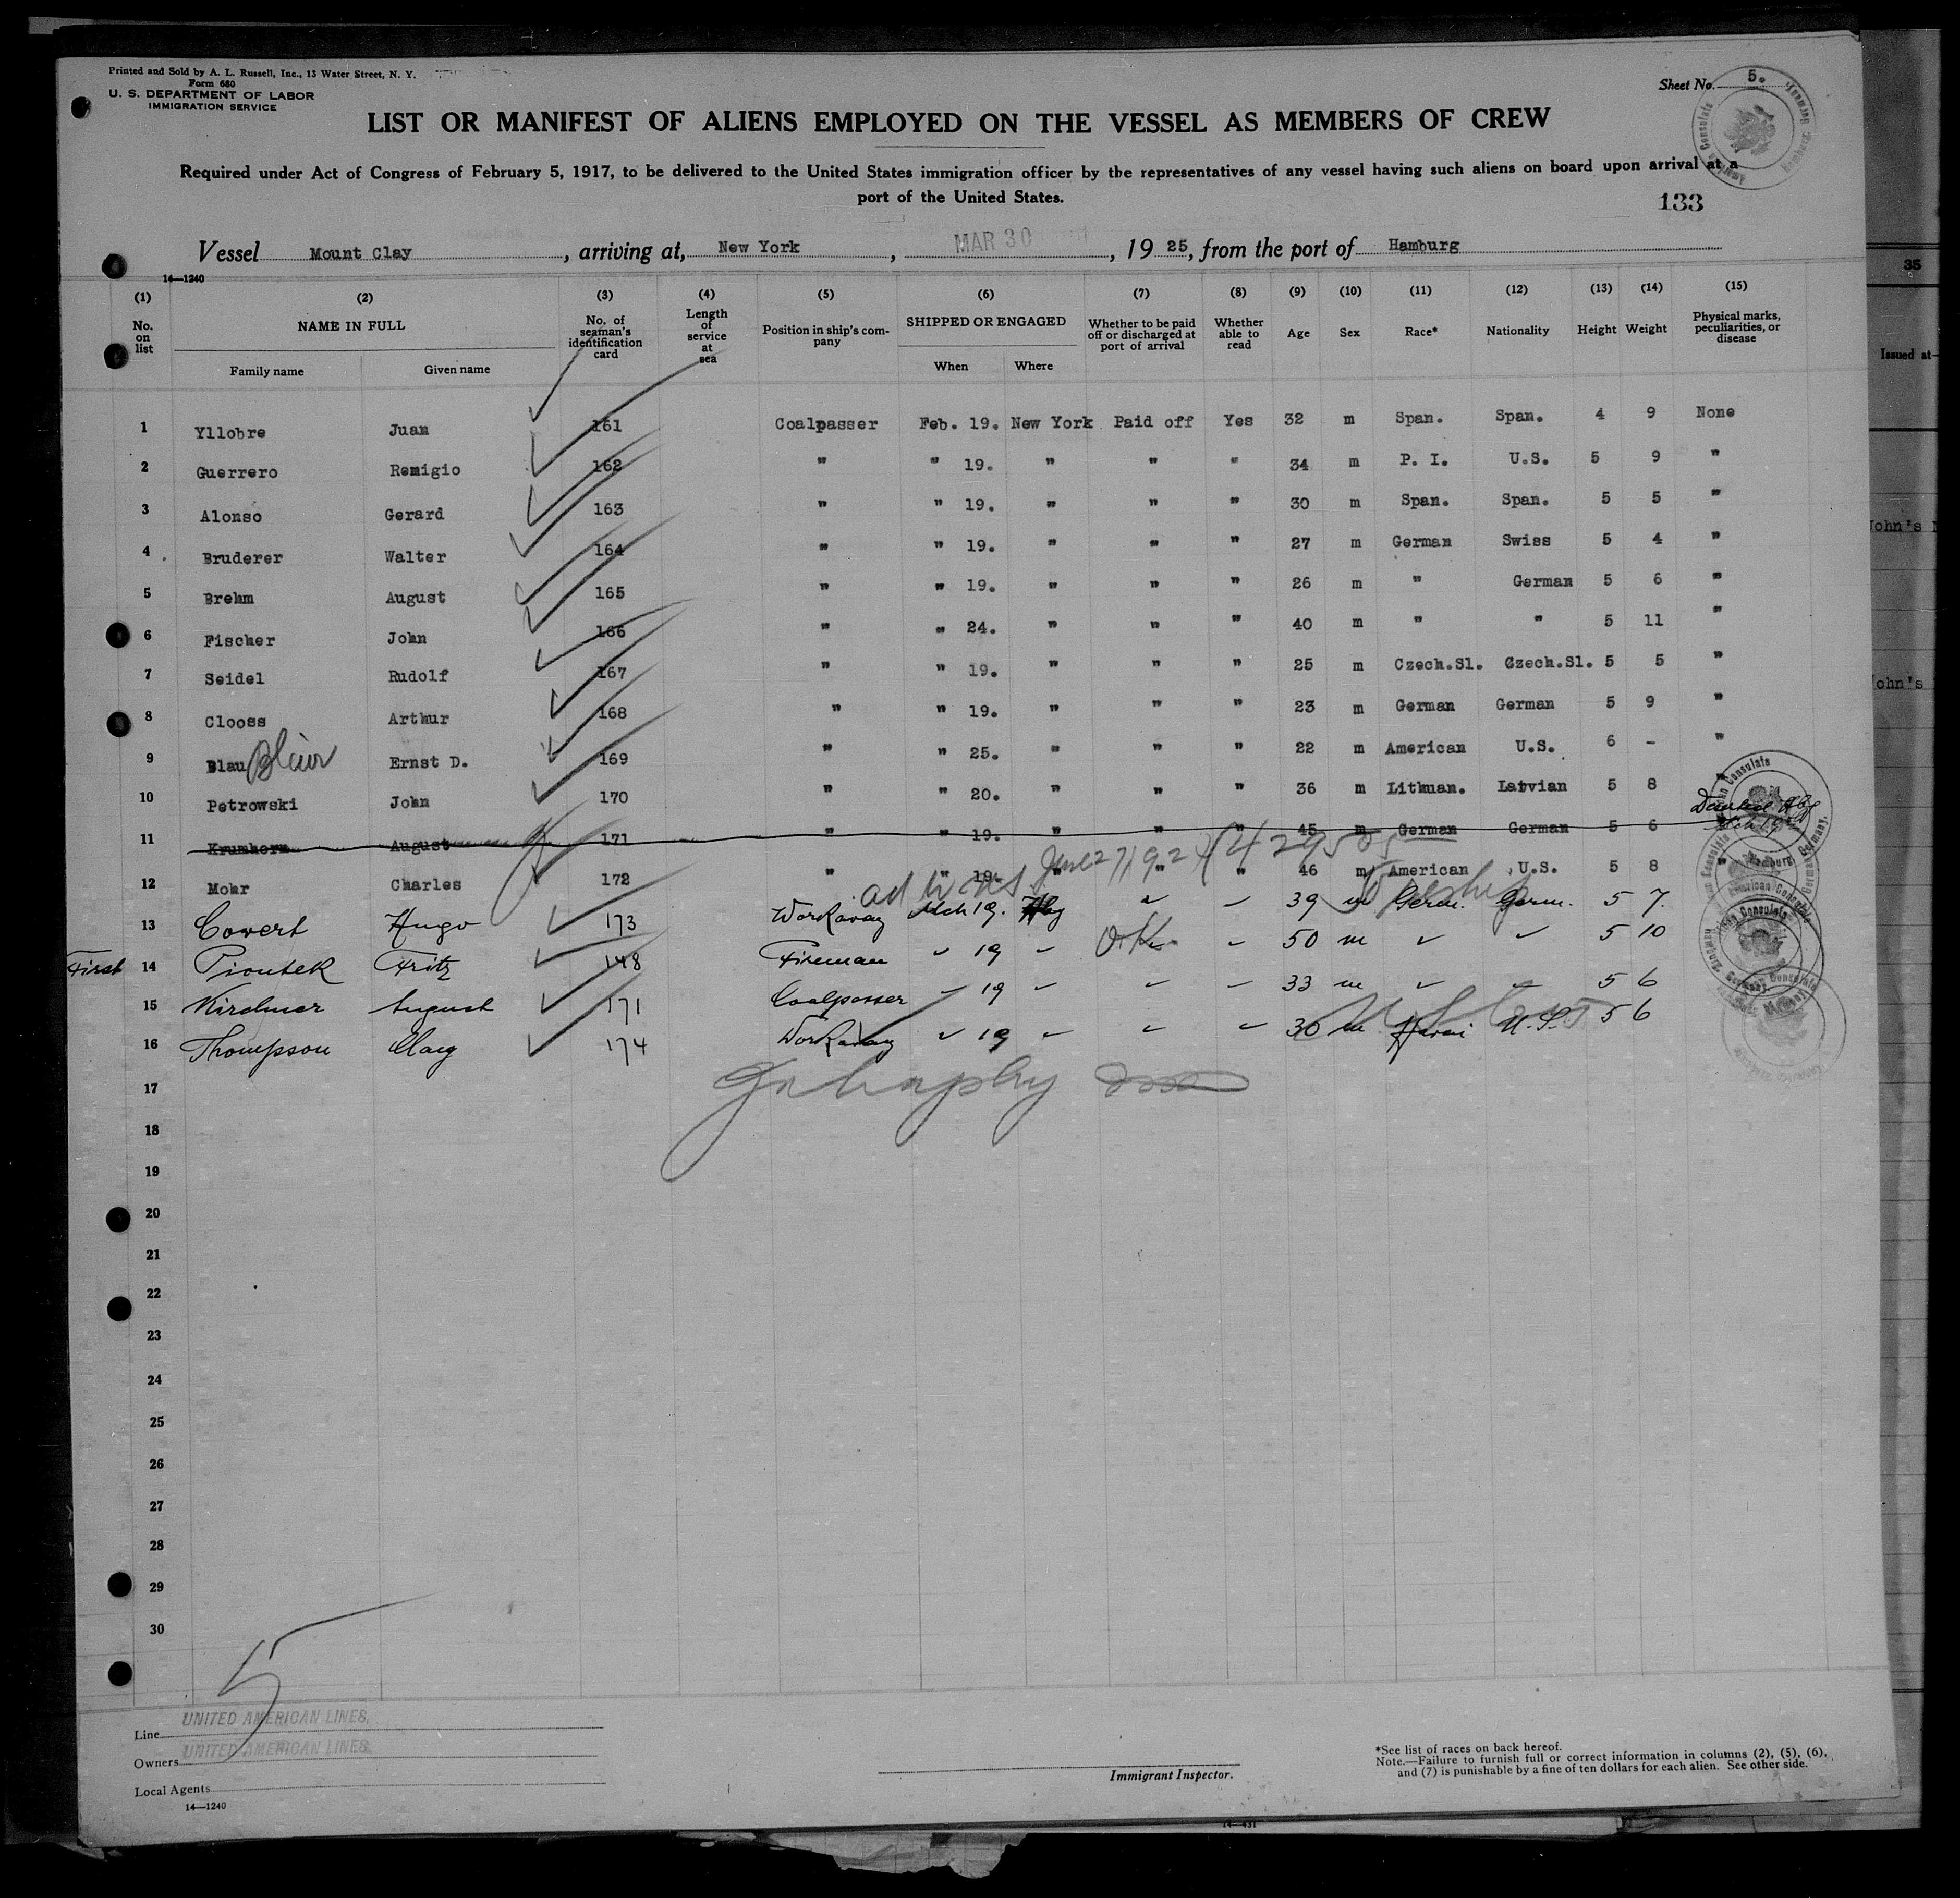 Printed and Sold by A. L. Russell, Inc., 13 Water Street, N. Y.
Form 680
U. S. DEPARTMENT OF LABOR
IMMIGRATION SERVICE
Sheet No. 5.
LIST OR MANIFEST OF ALIENS EMPLOYED ON THE VESSEL AS MEMBERS OF CREW
Required under Act of Congress of February 5, 1917, to be delivered to the United States immigration officer by the representatives of any vessel having such aliens on board upon arrival at a
port of the United States.
133
Vessel Mount Clay, arriving at, New York, MAR 30, 1925, from the port of Hamburg
14—1240
(1) (2) (3) (4) (5) (6) (7) (8) (9) (10) (11) (12) (13) (14) (15)
No. on list NAME IN FULL Family name Given name No. of seaman's identification card Length of service at sea Position in ship's company SHIPPED OR ENGAGED When Where Whether to be paid off or discharged at port of arrival Whether able to read Age Sex Race* Nationality Height Weight Physical marks, peculiarities, or disease
1 Yllobre Juan 161 Coalpasser Feb. 19. New York Paid off Yes 32 m Span. Span. 4 9 None
2 Guerrero Remigio 162 " " 19. " " " 34 m P. I. U.S. 5 9 "
3 Alonso Gerard 163 " " 19. " " " 30 m Span. Span. 5 5 "
4 Bruderer Walter 164 " " 19. " " " 27 m German Swiss 5 4 "
5 Brehm August 165 " " 19. " " " 26 m " German 5 6 "
6 Fischer John 166 " " 24. " " " 40 m " " 5 11 "
7 Seidel Rudolf 167 " " 19. " " " 25 m Czech.Sl. Czech.Sl. 5 5 "
8 Clooss Arthur 168 " " 19. " " " 23 m German German 5 9 "
9 Blau Blair Ernst D. 169 " " 25. " " " 22 m American U.S. 6 - "
10 Petrowski John 170 " " 20. " " " 36 m Lithuan. Latvian 5 8 "
11 Krumhorn August 171 " " 19. " " " 45 m German German 5 6
12 Mohr Charles 172 " " 19. " " " 46 m American U.S. 5 8 "
13 Covert Hugo 173 Workaway Mch 19. Hbg " " 39 m Germ. Germ. 5 7.
First 14 Piontek Fritz 148 Fireman " 19 " O.K. " 50 m " " 5 10
15 Kirchner August 171 Coalpasser " 19 " " " 33 m " " 5 6
16 Thompson 174 Workaway " 19 " " " 30 m U.S. 5 6
17
18
19
20
21
22
23
24
25
26
27
28
29
30
5
Line UNITED AMERICAN LINES,
Owners UNITED AMERICAN LINES,
Local Agents
14—1240
Immigrant Inspector.
*See list of races on back hereof.
Note.—Failure to furnish full or correct information in columns (2), (5), (6),
and (7) is punishable by a fine of ten dollars for each alien. See other side.
35
Issued at
John's
ohn's
14—431